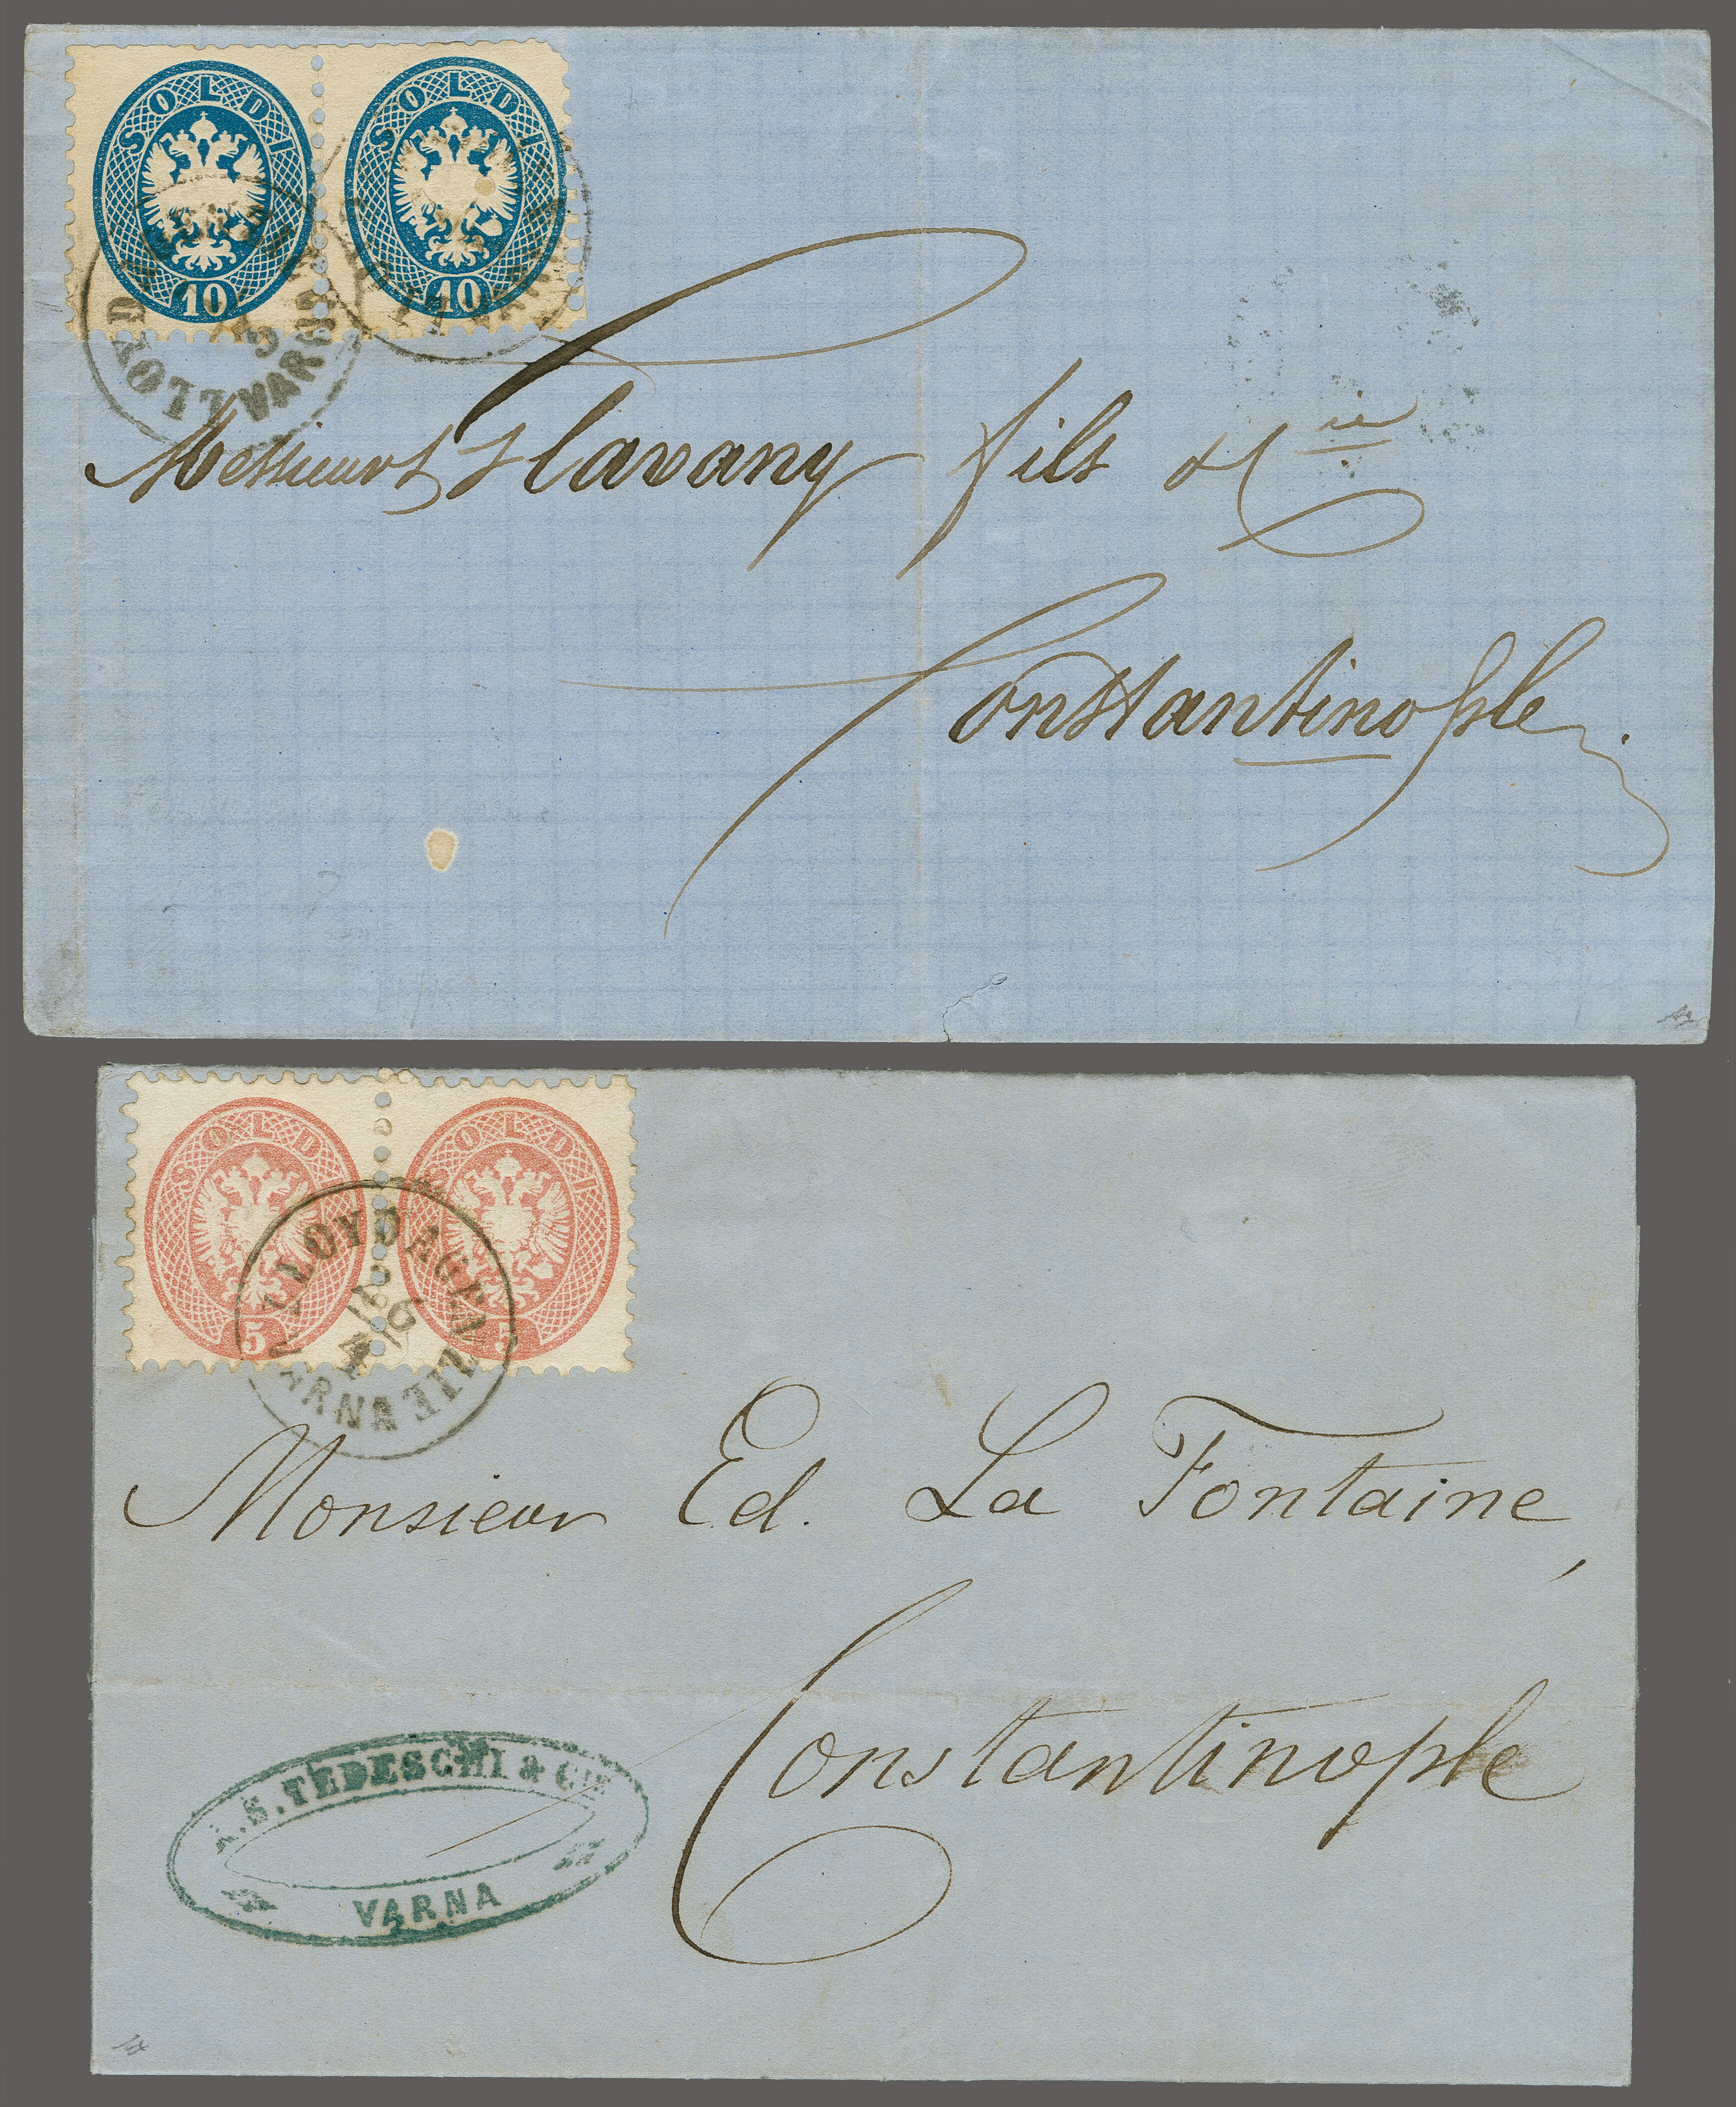 SOLDI 10
SOLDI 10
LLOYD
VARNA
Messieurs Glavany fils & Cie
Constantinople
SOLDI 5
SOLDI 5
LLOYD AGENZIE
12/4
VARNA
Monsieur Ed. La Fontaine,
Constantinople
S. TEDESCHI & CIE
VARNA